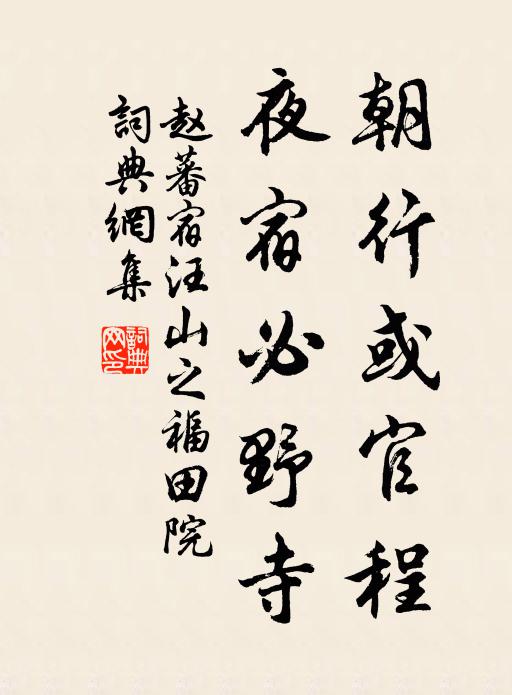 朝行或官程
夜宿必野寺
赵蕃宿汪山之福田院
詞典網集
詞典網印